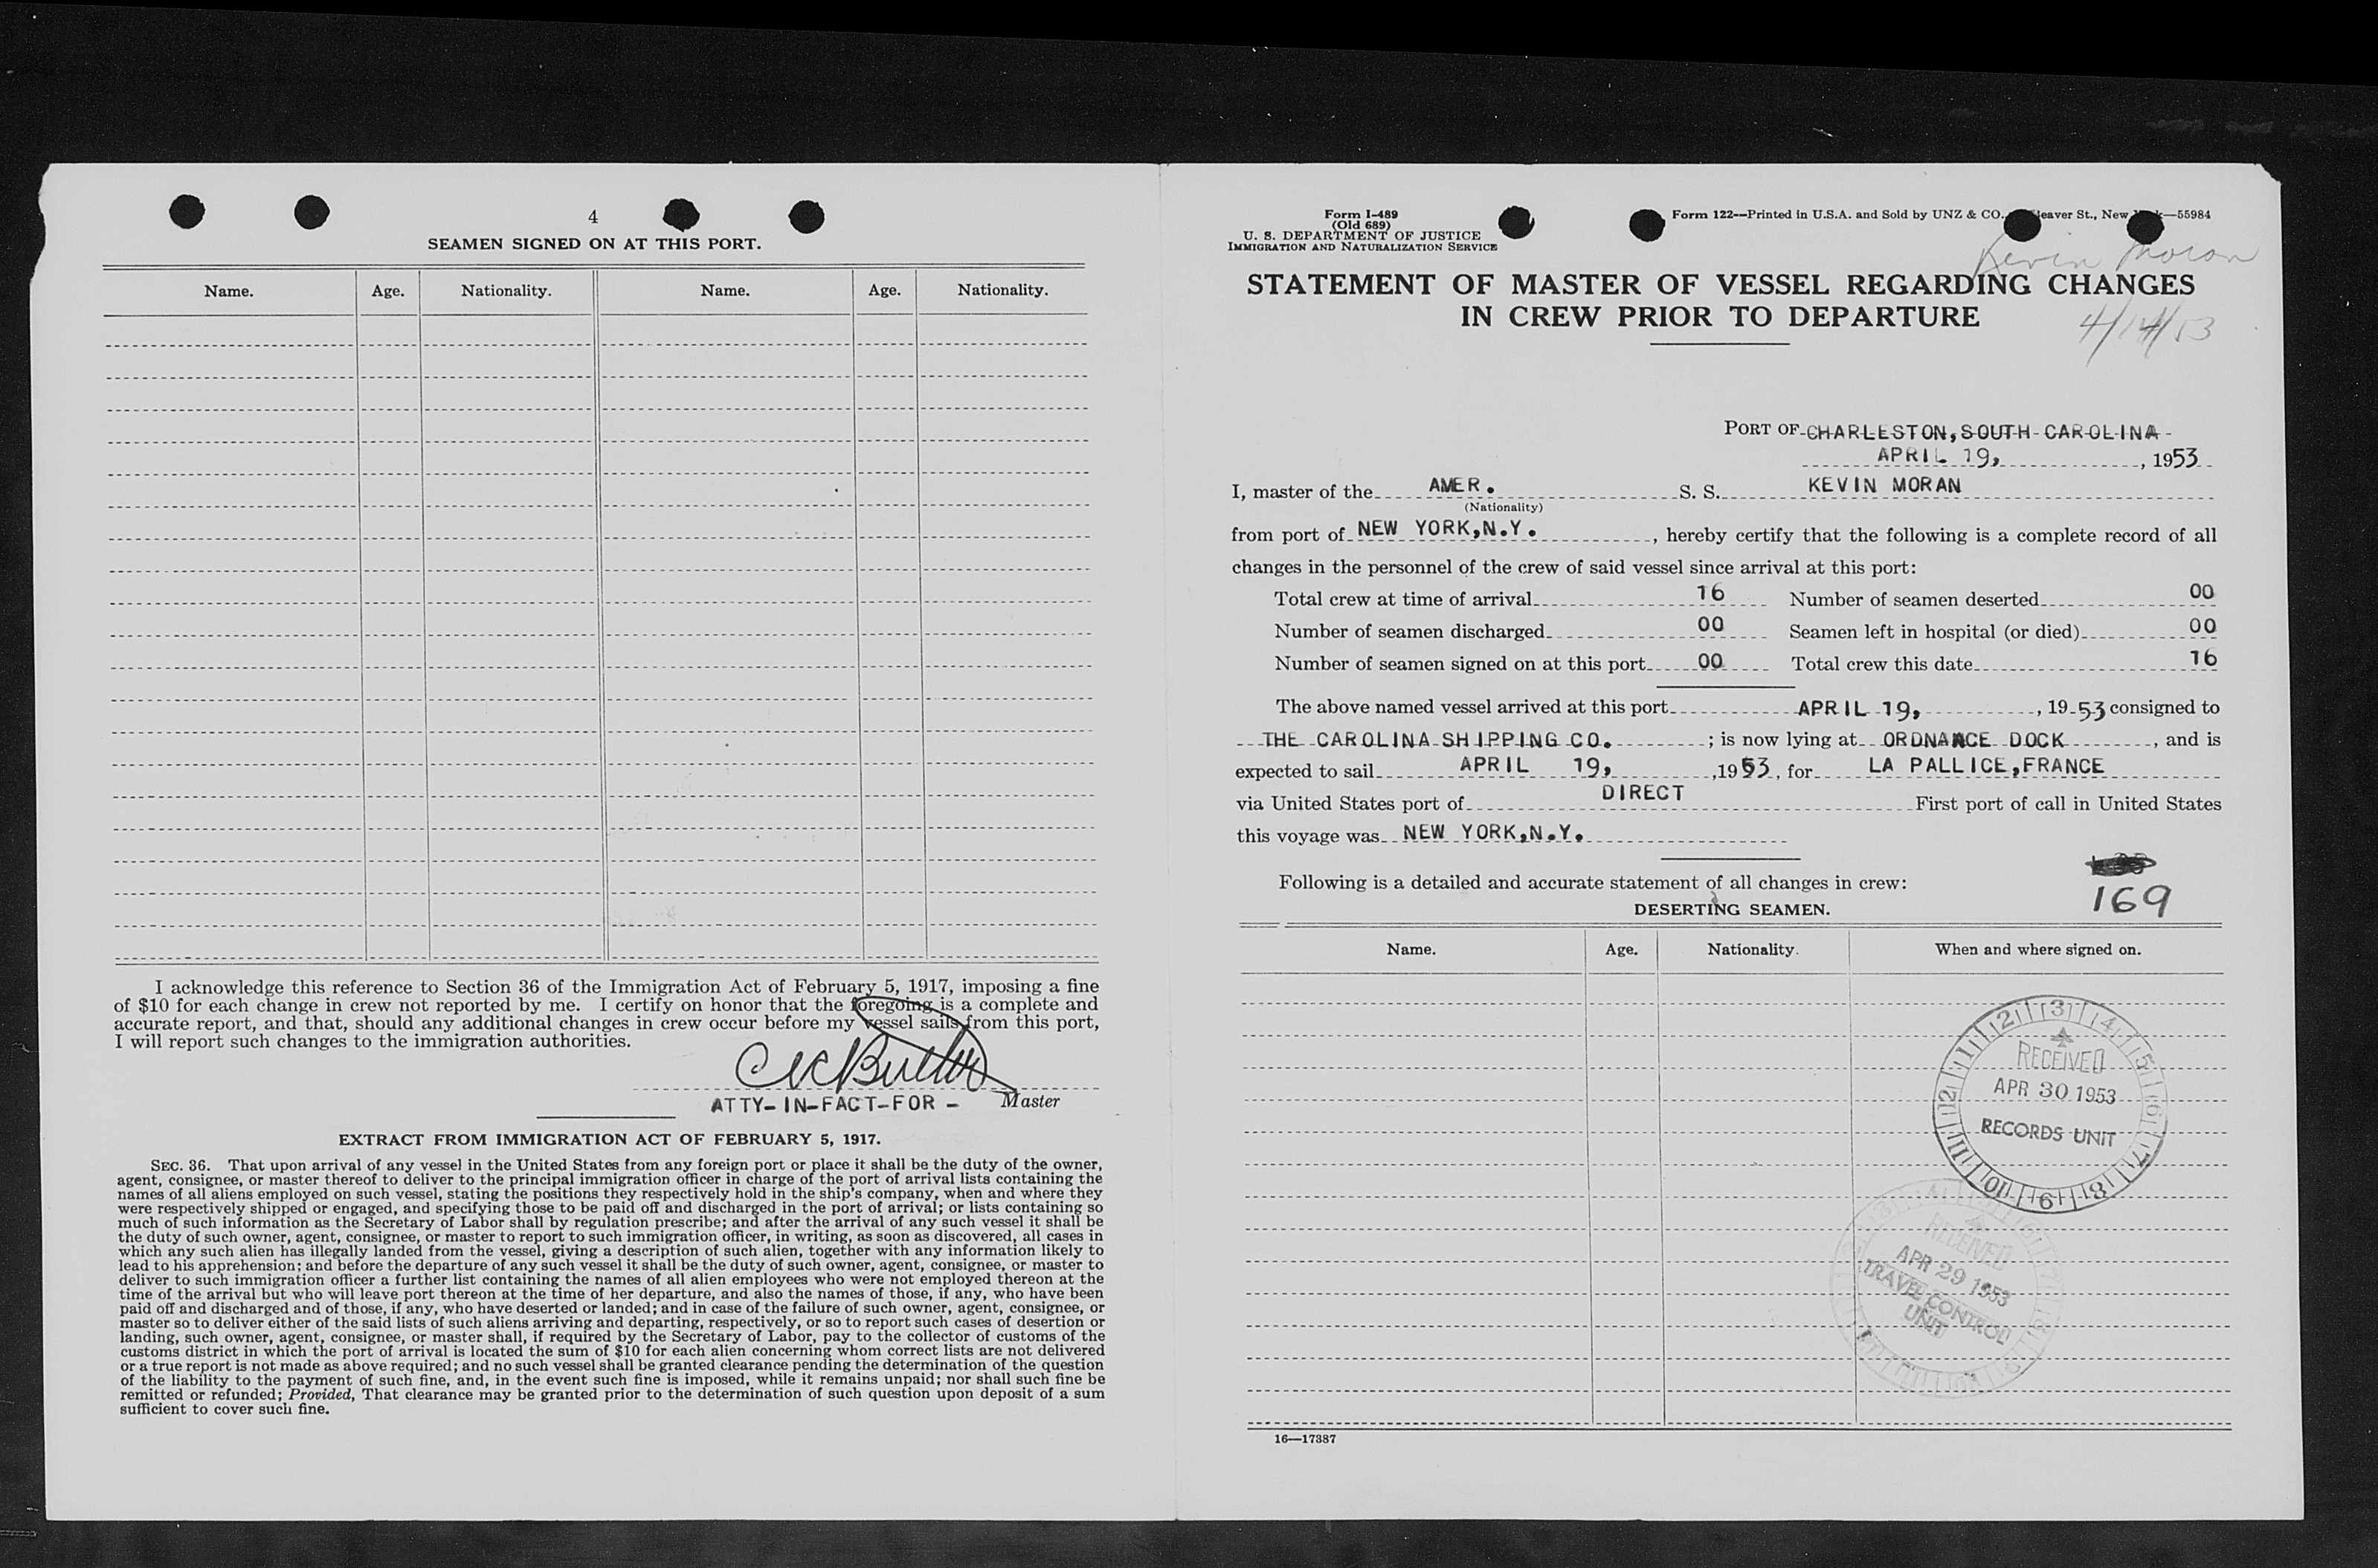 4
SEAMEN SIGNED ON AT THIS PORT.
Name. Age. Nationality. Name. Age. Nationality.
I acknowledge this reference to Section 36 of the Immigration Act of February 5, 1917, imposing a fine
of $10 for each change in crew not reported by me. I certify on honor that the foregoing is a complete and
accurate report, and that, should any additional changes in crew occur before my vessel sails from this port,
I will report such changes to the immigration authorities.
ATTY-IN-FACT-FOR - Master
EXTRACT FROM IMMIGRATION ACT OF FEBRUARY 5, 1917.
SEC. 36. That upon arrival of any vessel in the United States from any foreign port or place it shall be the duty of the owner,
agent, consignee, or master thereof to deliver to the principal immigration officer in charge of the port of arrival lists containing the
names of all aliens employed on such vessel, stating the positions they respectively hold in the ship's company, when and where they
were respectively shipped or engaged, and specifying those to be paid off and discharged in the port of arrival; or lists containing so
much of such information as the Secretary of Labor shall by regulation prescribe; and after the arrival of any such vessel it shall be
the duty of such owner, agent, consignee, or master to report to such immigration officer, in writing, as soon as discovered, all cases in
which any such alien has illegally landed from the vessel, giving a description of such alien, together with any information likely to
lead to his apprehension; and before the departure of any such vessel it shall be the duty of such owner, agent, consignee, or master to
deliver to such immigration officer a further list containing the names of all alien employees who were not employed thereon at the
time of the arrival but who will leave port thereon at the time of her departure, and also the names of those, if any, who have been
paid off and discharged and of those, if any, who have deserted or landed; and in case of the failure of such owner, agent, consignee, or
master so to deliver either of the said lists of such aliens arriving and departing, respectively, or so to report such cases of desertion or
landing, such owner, agent, consignee, or master shall, if required by the Secretary of Labor, pay to the collector of customs of the
customs district in which the port of arrival is located the sum of $10 for each alien concerning whom correct lists are not delivered
or a true report is not made as above required; and no such vessel shall be granted clearance pending the determination of the question
of the liability to the payment of such fine, and, in the event such fine is imposed, while it remains unpaid; nor shall such fine be
remitted or refunded; Provided, That clearance may be granted prior to the determination of such question upon deposit of a sum
sufficient to cover such fine.
Form I-489
(Old 689)
U. S. DEPARTMENT OF JUSTICE
IMMIGRATION AND NATURALIZATION SERVICE
Form 122—Printed in U.S.A. and Sold by UNZ & CO., eaver St., New —55984
Kevin Moran
STATEMENT OF MASTER OF VESSEL REGARDING CHANGES
IN CREW PRIOR TO DEPARTURE
4/14/53
PORT OF CHARLESTON, SOUTH CAROLINA
APRIL 19, , 1953
I, master of the AMER. S. S. KEVIN MORAN
(Nationality)
from port of NEW YORK,N.Y. , hereby certify that the following is a complete record of all
changes in the personnel of the crew of said vessel since arrival at this port:
Total crew at time of arrival 16 Number of seamen deserted 00
Number of seamen discharged 00 Seamen left in hospital (or died) 00
Number of seamen signed on at this port 00 Total crew this date 16
The above named vessel arrived at this port APRIL 19, , 1953 consigned to
THE CAROLINA SHIPPING CO. ; is now lying at ORDNANCE DOCK , and is
expected to sail APRIL 19, ,1953, for LA PALLICE,FRANCE
via United States port of DIRECT First port of call in United States
this voyage was NEW YORK,N.Y.
Following is a detailed and accurate statement of all changes in crew:
169
DESERTING SEAMEN.
Name. Age. Nationality. When and where signed on.
12 1 2 3 4 5 6 7 8 9 10 11
RECEIVED
APR 30 1953
RECORDS UNIT
RECEIVED
APR 29 1953
TRAVEL CONTROL
UNIT
16—17387